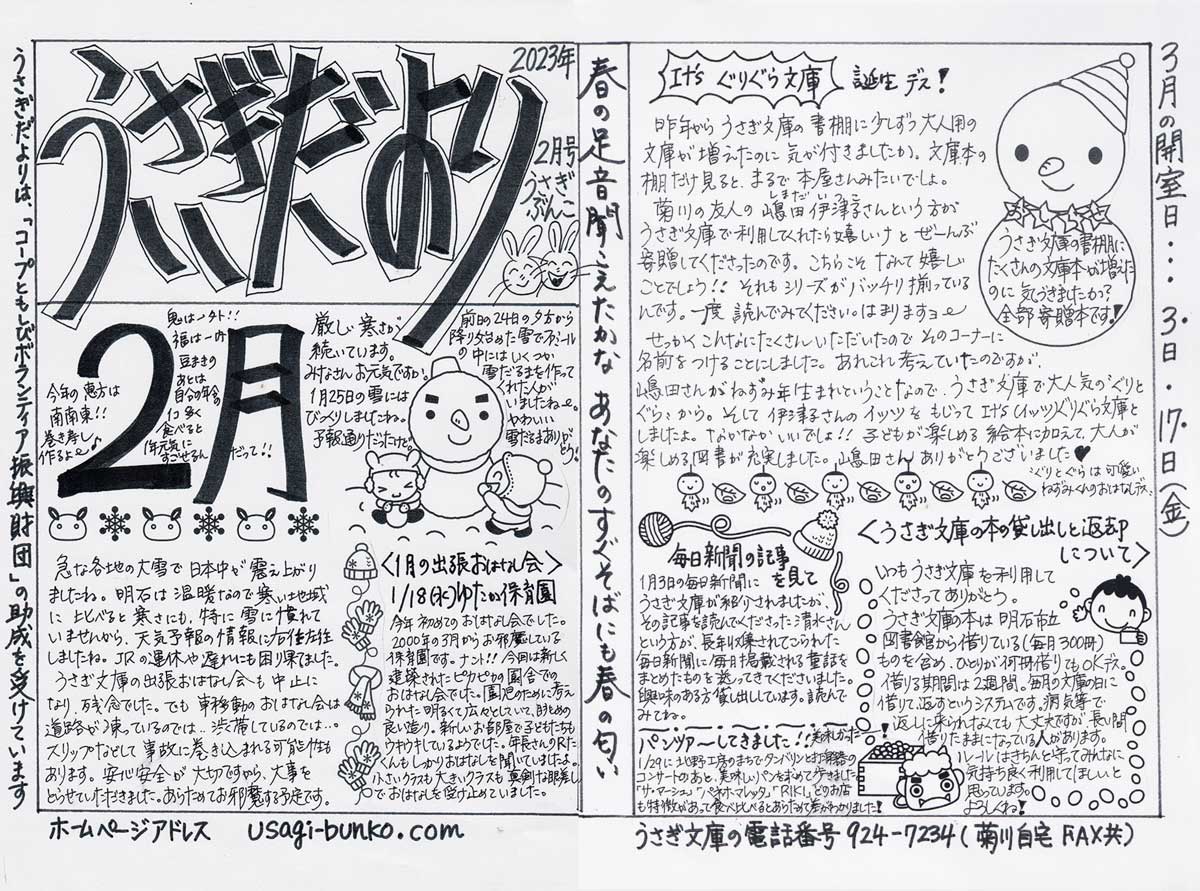 うさぎだより
2023年
2月号
うさぎ
ぶんこ
うさぎだよりは、「コープともしびボランティア振興財団」の助成を受けています
2月
鬼はーソト!!
福はー内
豆まきの
あとは
自分の年令の
イコ多く
食べると
1年元気に
すごせるん
だって!!
今年の恵方は
南南東!!
巻き寿し
作るよ〜♪
厳しい寒さが
続いています。
みなさんお元気ですか。
1月25日の雪には
びっくりしましたね。
予報通りだったけど。
前日の24日の夕方から
降り始めた雪で
の中にはいくつか
雪だるまを作って
くれた人が
いましたね〜。
かわいい
雪だるまありが
とう!
急な各地の大雪で日本中が震え上がり
ましたね。明石は温暖なので寒い地域
に比べると寒さにも、特に雪に慣れて
いませんから、天気予報の情報に右往左往
しましたね。JRの運休や遅れにも困り果てました。
うさぎ文庫の出張おはなし会も中止に
なり、残念でした。でも車移動のおはなし会は
道路が凍っているのでは‥渋滞しているのでは‥。
スリップなどして事故に巻き込まれる可能性も
あります。安心安全が大切ですから、大事を
とらせていただきました。あらためてお邪魔する予定です。
<1月の出張おはなし会>
1/18(水)ゆたか保育園
今年初めてのおはなし会でした。
2000年の3月からお邪魔している
保育園です。ナント!!今回は新しく
建築されたピカピカの園舎での
おはなし会でした。園児のために考え
られた明るくて広々としていて、
良い造り。新しいお部屋で子どもたちも
ウキウキしているようでした。年長さんのRた
くんもしっかりおはなしを聞いてましたよ。
小さいクラスも大きいクラスも真剣な眼差し
でおはなしを受け止めていました。
ホームページアドレス usagi-bunko.com
春の足音聞こえたかな あなたのすぐそばにも春の匂い
It's ぐりぐら文庫 誕生デス!
昨年からうさぎ文庫の書棚に少しずつ大人用の
文庫が増えたのに気が付きましたか。文庫本の
棚だけ見ると、まるで本屋さんみたいでしょ。
しまだ いつこ
菊川の友人の嶋田伊津子さんという方が
うさぎ文庫で利用してくれたら嬉しいナとぜーんぶ
寄贈してくださったのです。こちらこそなんて嬉しい
ことでしょう!!それもシリーズがバッチリ揃っている
んです。一度読んでみてください。はまりますョ〜
せっかくこんなにたくさんいただいたのでそのコーナーに
名前をつけることにしました。あれこれ考えていたのですが、
嶋田さんがねずみ年生まれということなので、うさぎ文庫で大人気の“ぐりと
ぐら”から。そして伊津子さんのイッツをもじってIt's(イッツ)ぐりぐら文庫と
しましたよ。なかなかいいでしょ!!子どもが楽しめる絵本に加えて、大人が
楽しめる図書が充実しました。嶋田さんありがとうございました♥
ぐりとぐらは可愛い
ねずみくんのおはなしデス
うさぎ文庫の書棚に
たくさんの文庫本が増えた
のに気づきましたか?
全部寄贈本です!
毎日新聞の記事
を見て
1月3日の毎日新聞に
うさぎ文庫が紹介されましたが、
その記事を読んでくださった清水さん
という方が、長年収集されてこられた
毎日新聞に毎月掲載される童話を
まとめたものを送ってきてくださいました。
興味のある方貸し出ししています。読んで
みてね。
パンツアーしてきました!!
1/29に北野工房のまちでタンバリンと
コンサートのあと、美味しいパンを求めて歩きました
「サ・マーシュ」「パネ・ホ・マレッタ」「RIKI」どのお店
も特徴があって食べ比べるとあらためて差がわかりました!
<うさぎ文庫の本の貸し出しと返却
について>
いつもうさぎ文庫を利用して
くださってありがとう。
うさぎ文庫の本は明石市立
図書館から借りている(毎月300冊)
ものを含め、ひとりが何冊借りてもOKデス。
借りる期間は2週間。毎月の文庫の日に
借りて返すというシステムです。病気等で
返しに来られなくても大丈夫ですが、長い間
借りたままになっている人があります。
ルールはきちんと守ってみんなに
気持ち良く利用してほしいと
思っています。
よろしくね!
3月の開室日・・・3日・17日(金)
うさぎ文庫の電話番号 924-7234(菊川自宅 FAX共)